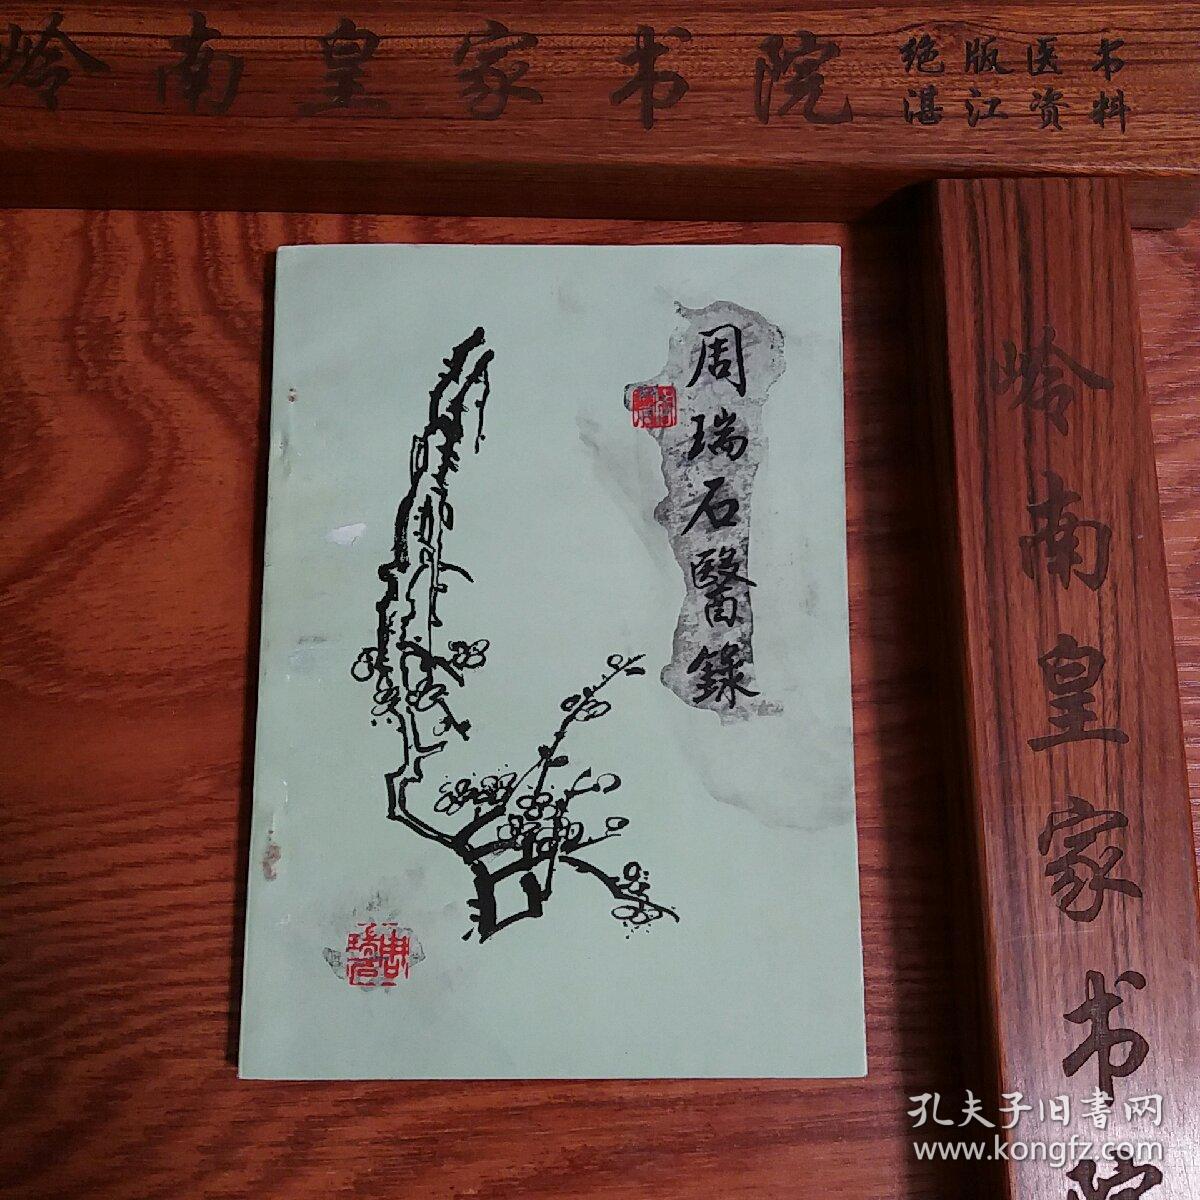 岭南皇家书院
绝版医书
湛江资料
周瑞石醫錄
周瑞石
岭南皇家书院
孔夫子旧書网
www.kongfz.com